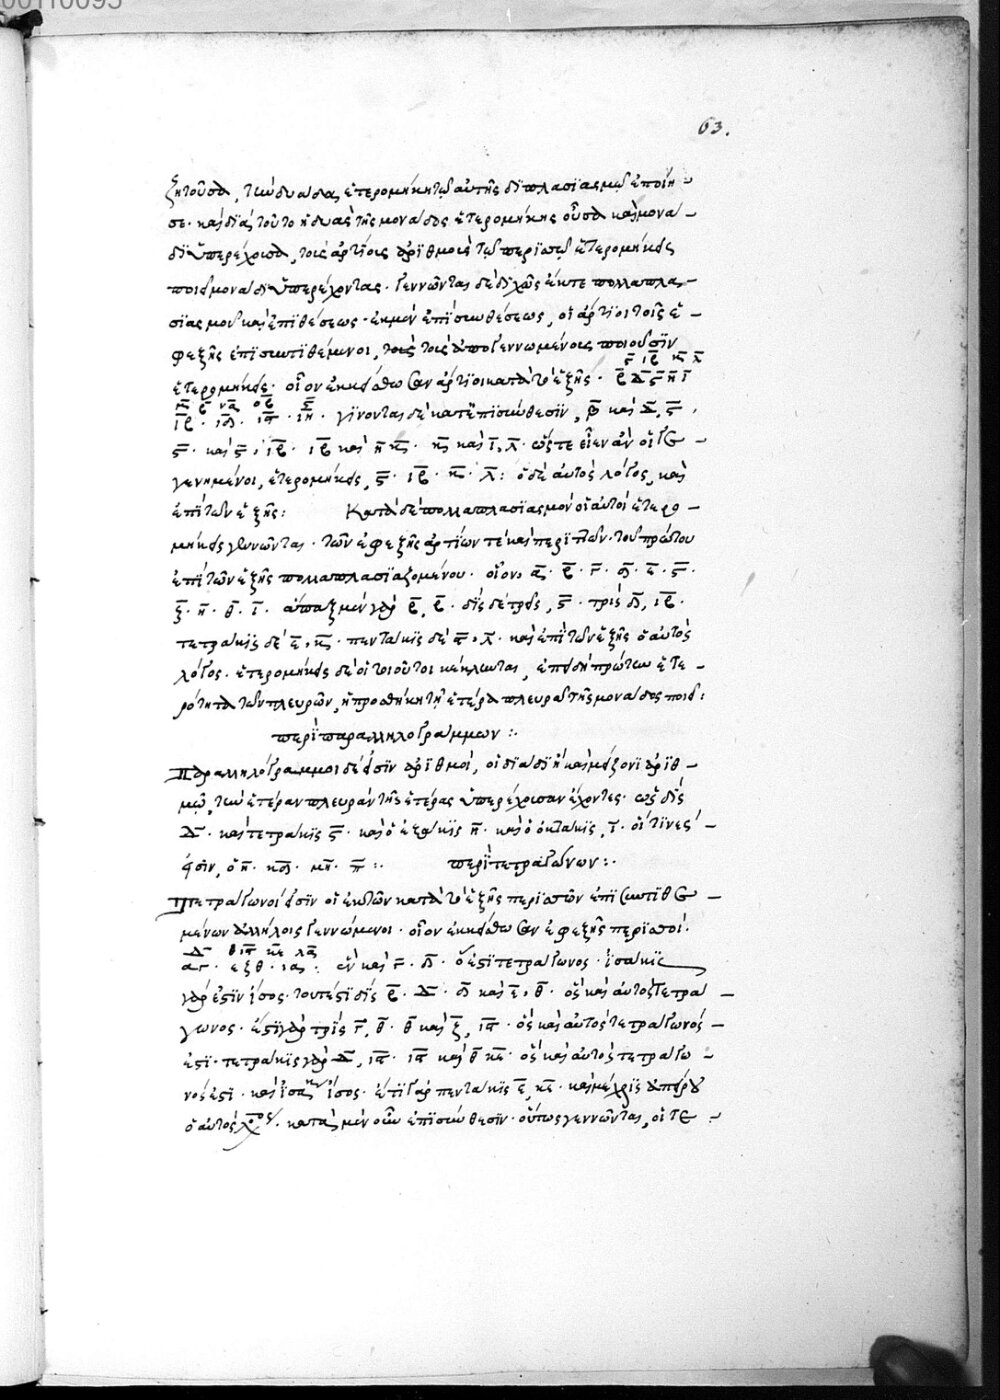 00110095
63.
ζητοῦσα, τὴν δυάδα ἑτερομήκη τῷ αὐτῆς διπλασιασμῷ ἐποίη-
σε· καὶ διὰ τοῦτο ἡ δυὰς τῆς μονάδος ἑτερομήκης οὖσα καὶ μονά-
δι ὑπερέχουσα, τοὺς ἀρτίους ἀριθμοὺς τῶν περισσῶν ἑτερομήκεις
ποιεῖ μονάδι ὑπερέχοντας. Γεννῶνται δὲ διχῶς ἔκ τε πολλαπλα-
σιασμοῦ καὶ ἐπισυνθέσεως· ἐκ μὲν ἐπισυνθέσεως, οἱ ἄρτιοι τοῖς ἐ-
φεξῆς ἐπισυντιθέμενοι, τοὺς ἀπογεννωμένους ποιοῦσιν
ς ιβ κ λ
ἑτερομήκεις· οἷον ἐκκείσθωσαν ἄρτιοι κατὰ τὸ ἑξῆς· β δ ς η ι
ιβ · ιδ · ις · ιη · γίνονται δὲ κατ' ἐπισύνθεσιν, β καὶ δ, ς,
ς · καὶ ς, ιβ · ιβ καὶ η κ · κ καὶ ι, λ · ὥστε εἶεν ἂν οἱ γε-
γενημένοι, ἑτερομήκεις, ς · ιβ · κ · λ: ὁ δὲ αὐτὸς λόγος, καὶ
ἐπὶ τῶν ἑξῆς: Κατὰ δὲ πολλαπλασιασμὸν οἱ αὐτοὶ ἑτερο-
μήκεις γεννῶνται· τῶν ἐφεξῆς ἀρτίων τε καὶ περιττῶν· τοῦ πρώτου
ἐπὶ τῶν ἑξῆς πολλαπλασιαζομένου· οἷον, α · β · γ · δ · ε · ς ·
ζ · η · θ · ι · ἅπαξ μὲν γὰρ β, β · δὶς δὲ τρεῖς, ς · τρὶς δ, ιβ ·
τετράκις δὲ ε, κ · πεντάκις δὲ ς, λ · καὶ ἐπὶ τῶν ἑξῆς ὁ αὐτὸς
λόγος. ἑτερομήκεις δὲ οἱ τοιοῦτοι κέκληνται, ἐπειδὴ πρώτην ἑτε-
ρότητα τῶν πλευρῶν, ἡ προσθήκη τῇ ἑτέρᾳ πλευρᾷ τῆς μονάδος ποιεῖ:
περὶ παραλληλογράμμων :.
Παραλληλόγραμμοι δέ εἰσιν ἀριθμοὶ, οἱ δυάδι ἢ καὶ μείζονι ἀριθ-
μῷ, τὴν ἑτέραν πλευρὰν τῆς ἑτέρας ὑπερέχουσαν ἔχοντες· ὡς δὶς
δ · καὶ τετράκις ς · καὶ ὁ ἑξάκις η · καὶ ὁ ὀκτάκις, ι · οἵτινές
εἰσιν, ὁ η · κδ · μη · π :. περὶ τετραγώνων :.
Τετράγωνοί εἰσιν οἱ ἐκ τῶν κατὰ τὸ ἑξῆς περισσῶν ἐπισυντιθε-
μένων ἀλλήλοις γεννώμενοι· οἷον ἐκκείσθωσαν ἐφεξῆς περισσοί·
δ θ ις κε λς
α γ · ε ζ θ · ια : ἓν καὶ γ · δ · ὅς ἐστι τετράγωνος· ἰσάκις
γάρ ἐστιν ἴσος· τουτέστι δὶς β · δ · δ καὶ ε, θ · ὃς καὶ αὐτὸς τετρά-
γωνος· ἔστι γὰρ τρὶς γ, θ · θ καὶ ζ, ις · ὃς καὶ αὐτὸς τετράγωνός-
ἐστι· τετράκις γὰρ δ, ις · ις καὶ θ κε · ὃς καὶ αὐτὸς τετράγω-
νός ἐστι· καὶ ἰσάκις ἴσος· ἔστι γὰρ πεντάκις ε, κε · καὶ μέχρις ἀπείρου
ὁ αὐτὸς λόγος. κατὰ μὲν οὖν ἐπισύνθεσιν· οὕτως γεννῶνται, οἱ τε-